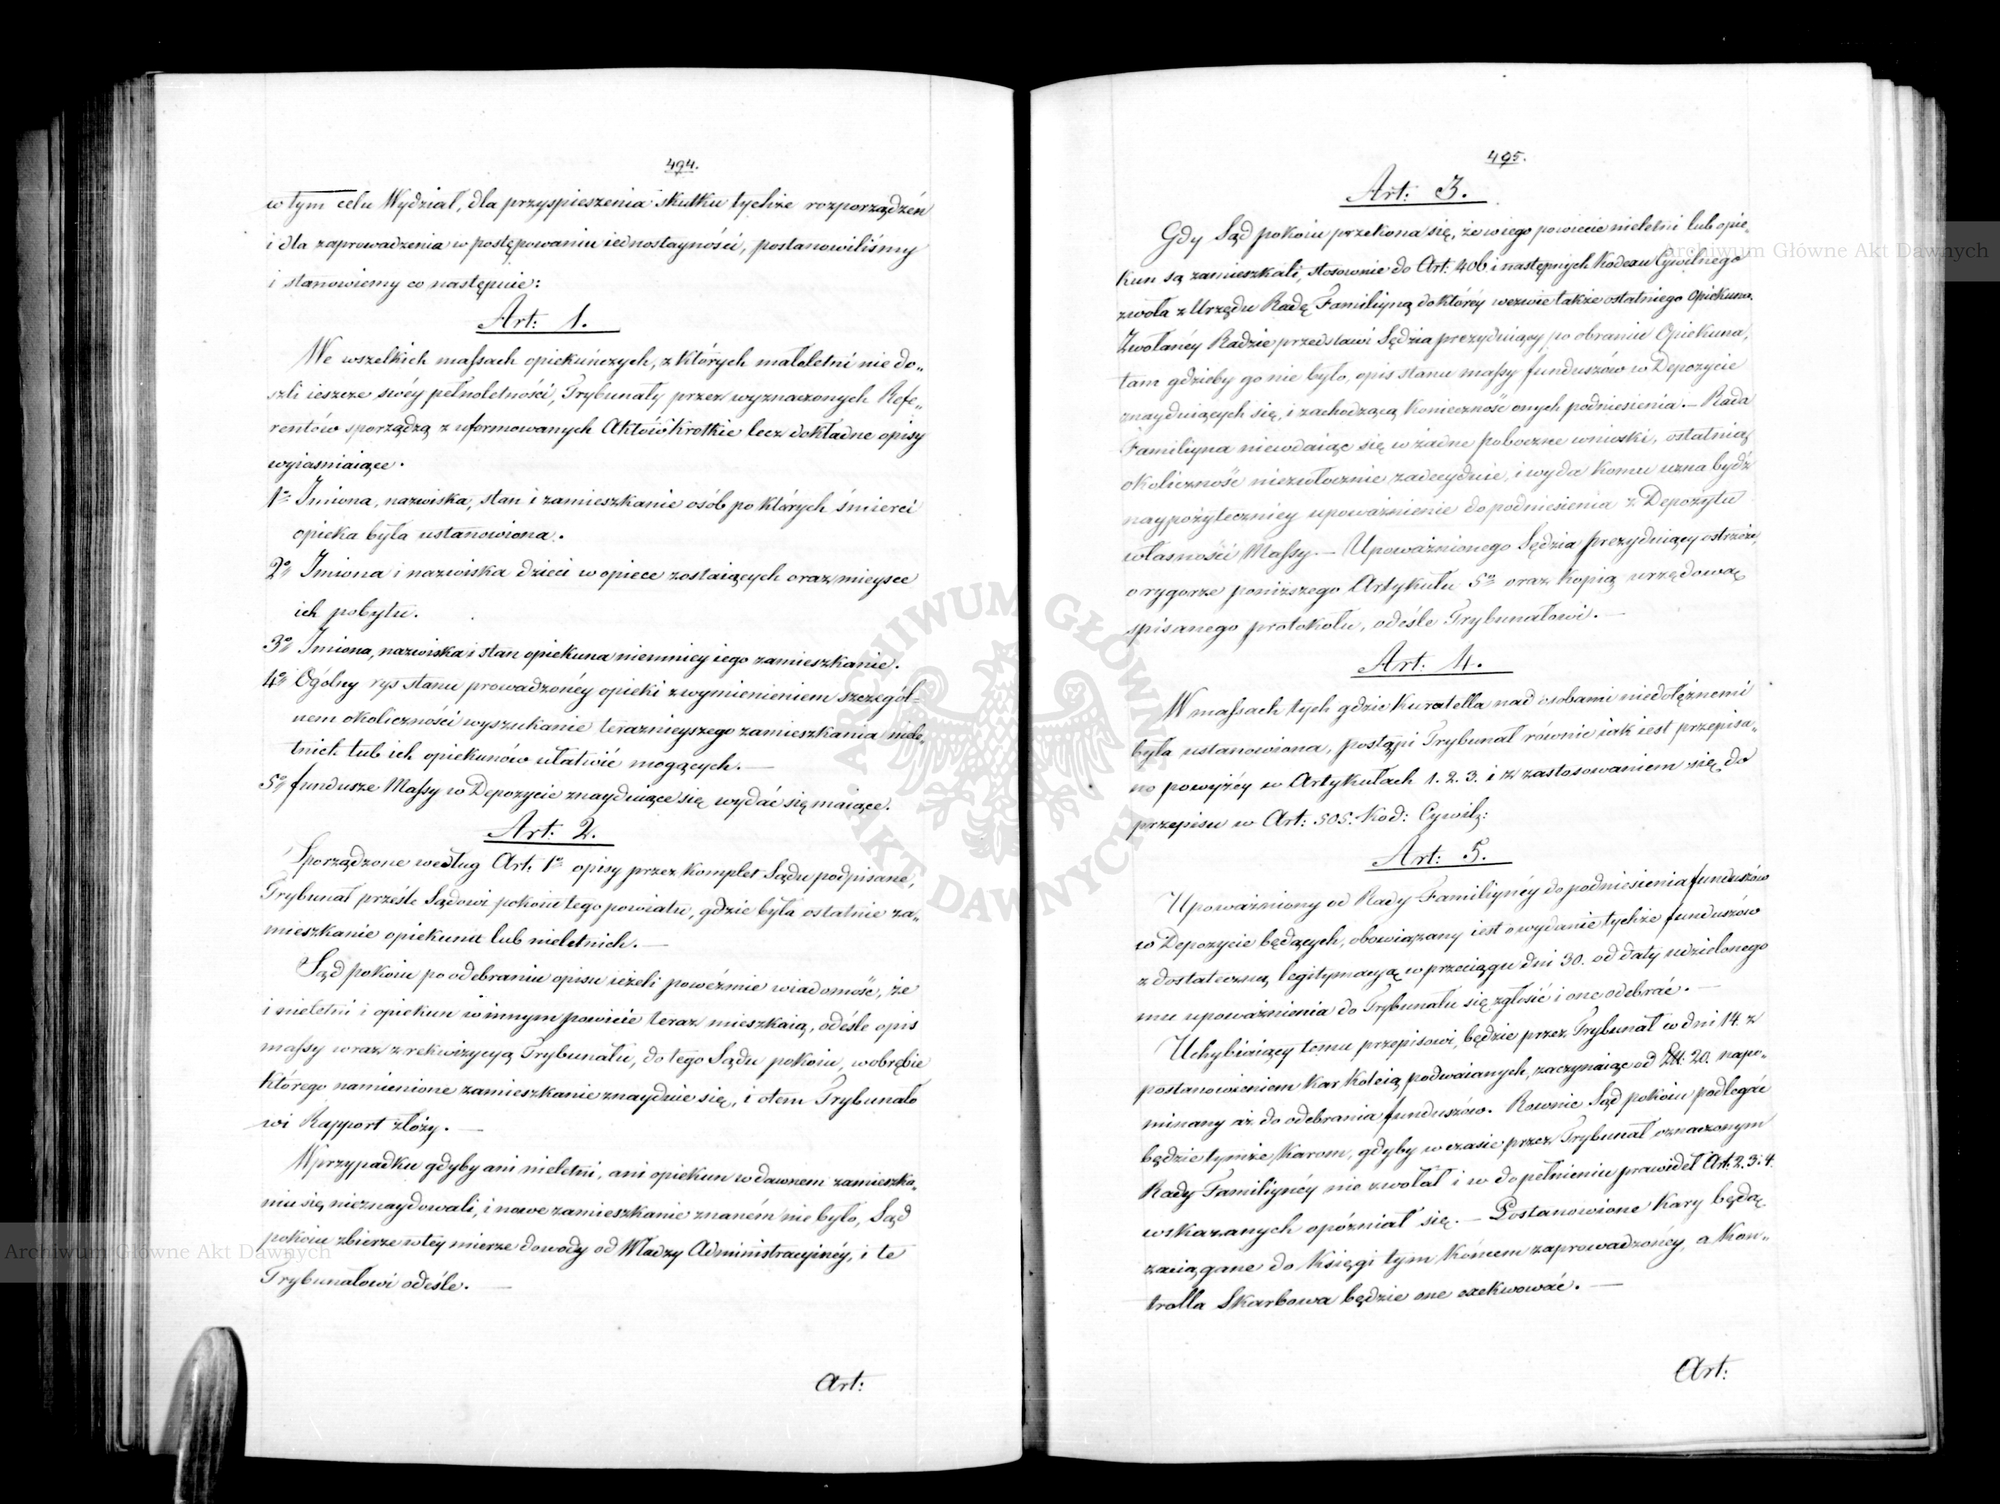 494.
w tym celu Wydział, dla przyspieszenia skutku tychże rozporządzeń
i dla zaprowadzenia w postępowaniu iednostayności, postanowiliśmy
i stanowiemy co następuie:
Art: 1.
We wszelkich massach opiekuńczych, z których małoletni nie do„
szli ieszcze swéy pełnoletności, Trybunały przez wyznaczonych Refe„
rentów sporządzą z uformowanych Aktów krótkie lecz dokładne opisy
wyiasniaiące.
1o Imiona, nazwiska, stan i zamieszkanie osób po których śmierci
opieka była ustanowiona.
2o Imiona i nazwiska dzieci w opiece zostaiących oraz mieysce
ich pobytu.
3o Imiona, nazwiska i stan opiekuna niemniey iego zamieszkanie.
4o Ogólny rys stanu prowadzonéy opieki z wymienieniem szczegól=
nem okoliczności wyszukanie teraznieyszego zamieszkania niele„
tnich lub ich opiekunów ułatwić mogących. —
5o fundusze Massy w Depozycie znayduiące się wydać się maiące.
Art: 2.
Sporządzone według Art: 1o opisy przez komplet Sądu podpisane,
Trybunał prześle Sądowi pokoiu tego powiatu, gdzie była ostatnie za„
mieszkanie opiekuna lub nieletnich. —
Sąd pokoiu po odebraniu opisu ieżeli poweźmie wiadomość, że
i nieletni i opiekun w innym powicie teraz mieszkaią, odeśle opis
massy wraz z rekwizycyą Trybunału, do tego Sądu pokoiu, w obrębie
którego namienione zamieszkanie znayduie się, i otem Trybunało
wi Rapport złoży. —
W przypadku gdyby ani nieletni, ani opiekun w dawnem zamieszka„
niu się nieznaydowali, i nowe zamieszkanie znaném nie było, Sąd
pokoiu zbierze w téy mierze dowody od Władzy Administracyinéy, i te
Trybunałowi odeśle. —
Art:
495.
Art: 3.
Gdy Sąd pokoiu przekona się, że w iego powiecie nieletni lub opie„
kun są zamieszkali, stosownie do Art: 406 i następnych Kodexu Cywilnego
zwoła z Urzędu Radę Familiyną do któréy wezwie także ostatniego Opiekuna.
Zwołanéy Radzie przedstawi Sędzia prezyduiący po obraniu Opiekuna,
tam gdzieby go nie było, opis stanu massy funduszów w Depozycie
znayduiących się, i zachodzącą konieczność onych podniesienia. — Rada
Familiyna niewdaiąc się w żadne poboczne wnioski, ostatnią
okoliczność niezwłocznie zadecyduie, i wyda komu uzna bydź
naypożyteczniey upoważnienie do podniesienia z Depozytu
własności Massy. — Upoważnionego Sędzia prezyduiący ostrzeże,
o rygorze poniższego Artykułu 5o oraz kopią urzędową
spisanego protokołu, odeśle Trybunałowi. —
Art: 4.
W massach tych gdzie Kuratella nad osobami niedołężnemi
była ustanowiona, postąpi Trybunał równie iak iest przepisa„
no powyżéy w Artykułach 1. 2. 3. i z zastosowaniem się do
przepisu w Art: 505. Kod: Cywil:
Art: 5.
Upoważniony od Rady Familiynéy do podniesienia funduszów
w Depozycie będących, obowiązany iest o wydanie tychże funduszów
z dostateczną legitymacyą w przeciągu dni 30. od daty udzielonego
mu upoważnienia do Trybunału się zgłosić i one odebrać. —
Uchybiaiący temu przepisowi, będzie przez Trybunał w dni 14. z
postanowieniem kar koleią podwaianych, zaczynaiąc od 20. napo„
minany aż do odebrania funduszów. Rownie Sąd pokoiu podlegać
będzie tymże karom, gdyby w czasie przez Trybunał oznaczonym
Rady Familiynéy nie zwołał i w dopełnieniu prawideł Art: 2. 3. 4.
wskazanych opóźniał się. — Postanowione kary będą
zaciągane do Księgi tym końcem zaprowadzonéy, a Kon„
trolla Skarbowa będzie one exekwować. —
Art:
Archiwum Główne Akt Dawnych
Archiwum Główne Akt Dawnych
ARCHIWUM GŁÓWNE AKT DAWNYCH